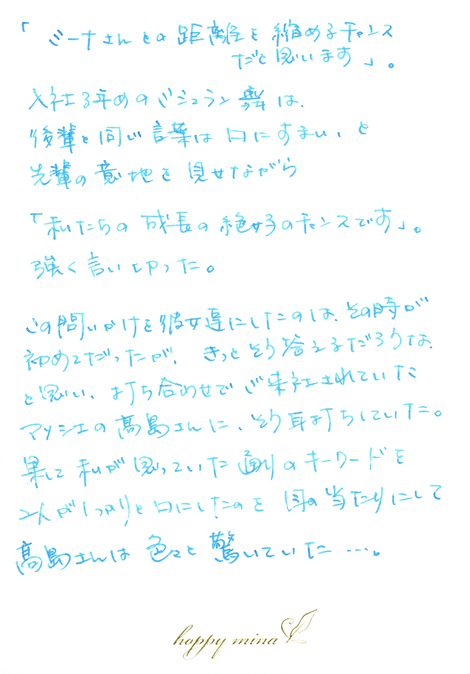 「ミーナさんとの距離を縮めるチャンス
だと思います」。
入社3年めのバシュラン舞は、
後輩と同じ言葉は口にすまい、と
先輩の意地を見せながら
「私たちの成長の絶好のチャンスです」。
強く言い切った。
この問いかけを彼女達にしたのは、その時が
初めてだったが、きっとそう答えるだろうな、
と思い、打ち合わせでご来社されていた
マッシェの高島さんに、そう耳打ちしていた。
果して私が思っていた通りのキーワードを
2人がしっかりと口にしたのを目の当たりにして
高島さんは色々と驚いていた…。
happy mina